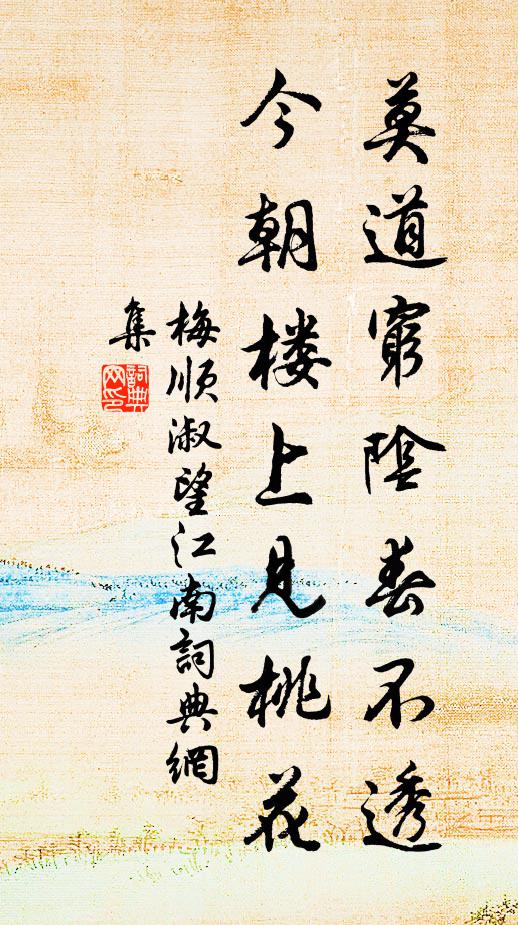 莫道窮陰春不透
今朝楼上見桃花
梅順淑望江南詞典網
集
詞典
网印